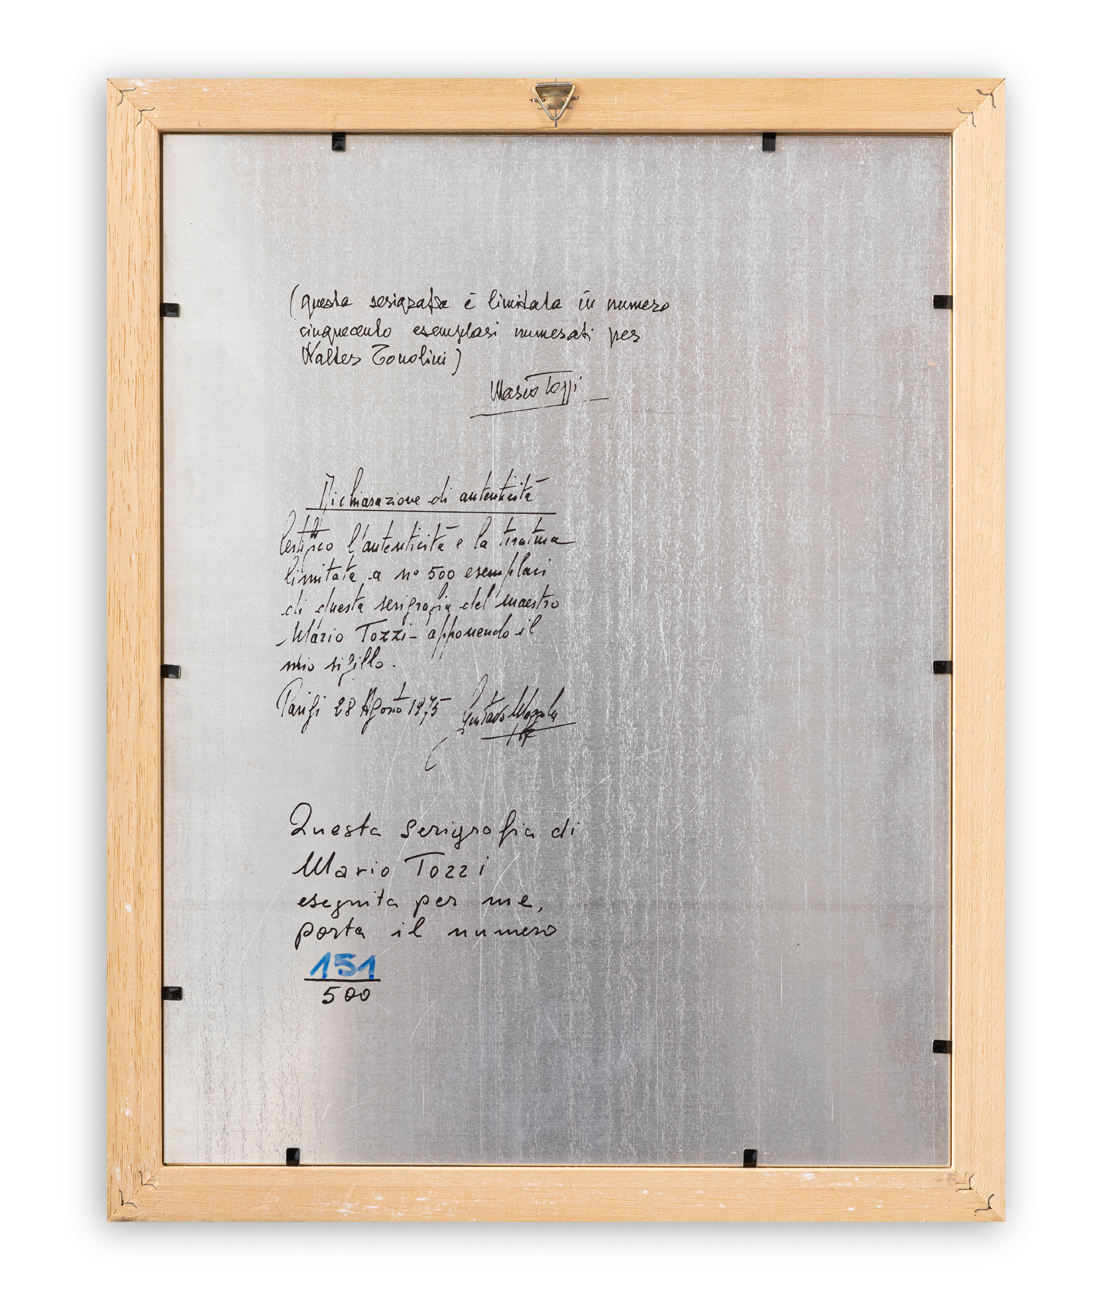 (questa serigrafia è limitata in numero
cinquecento esemplari numerati per
Walter Tonolini)
Mario Tozzi
Dichiarazione di autenticità
Certifico l'autenticità e la tiratura
limitata a n° 500 esemplari
di questa serigrafia del maestro
Mario Tozzi - apponendo il
mio sigillo.
Parigi 28 Agosto 1975
Questa serigrafia di
Mario Tozzi
eseguita per me,
porta il numero
151
500